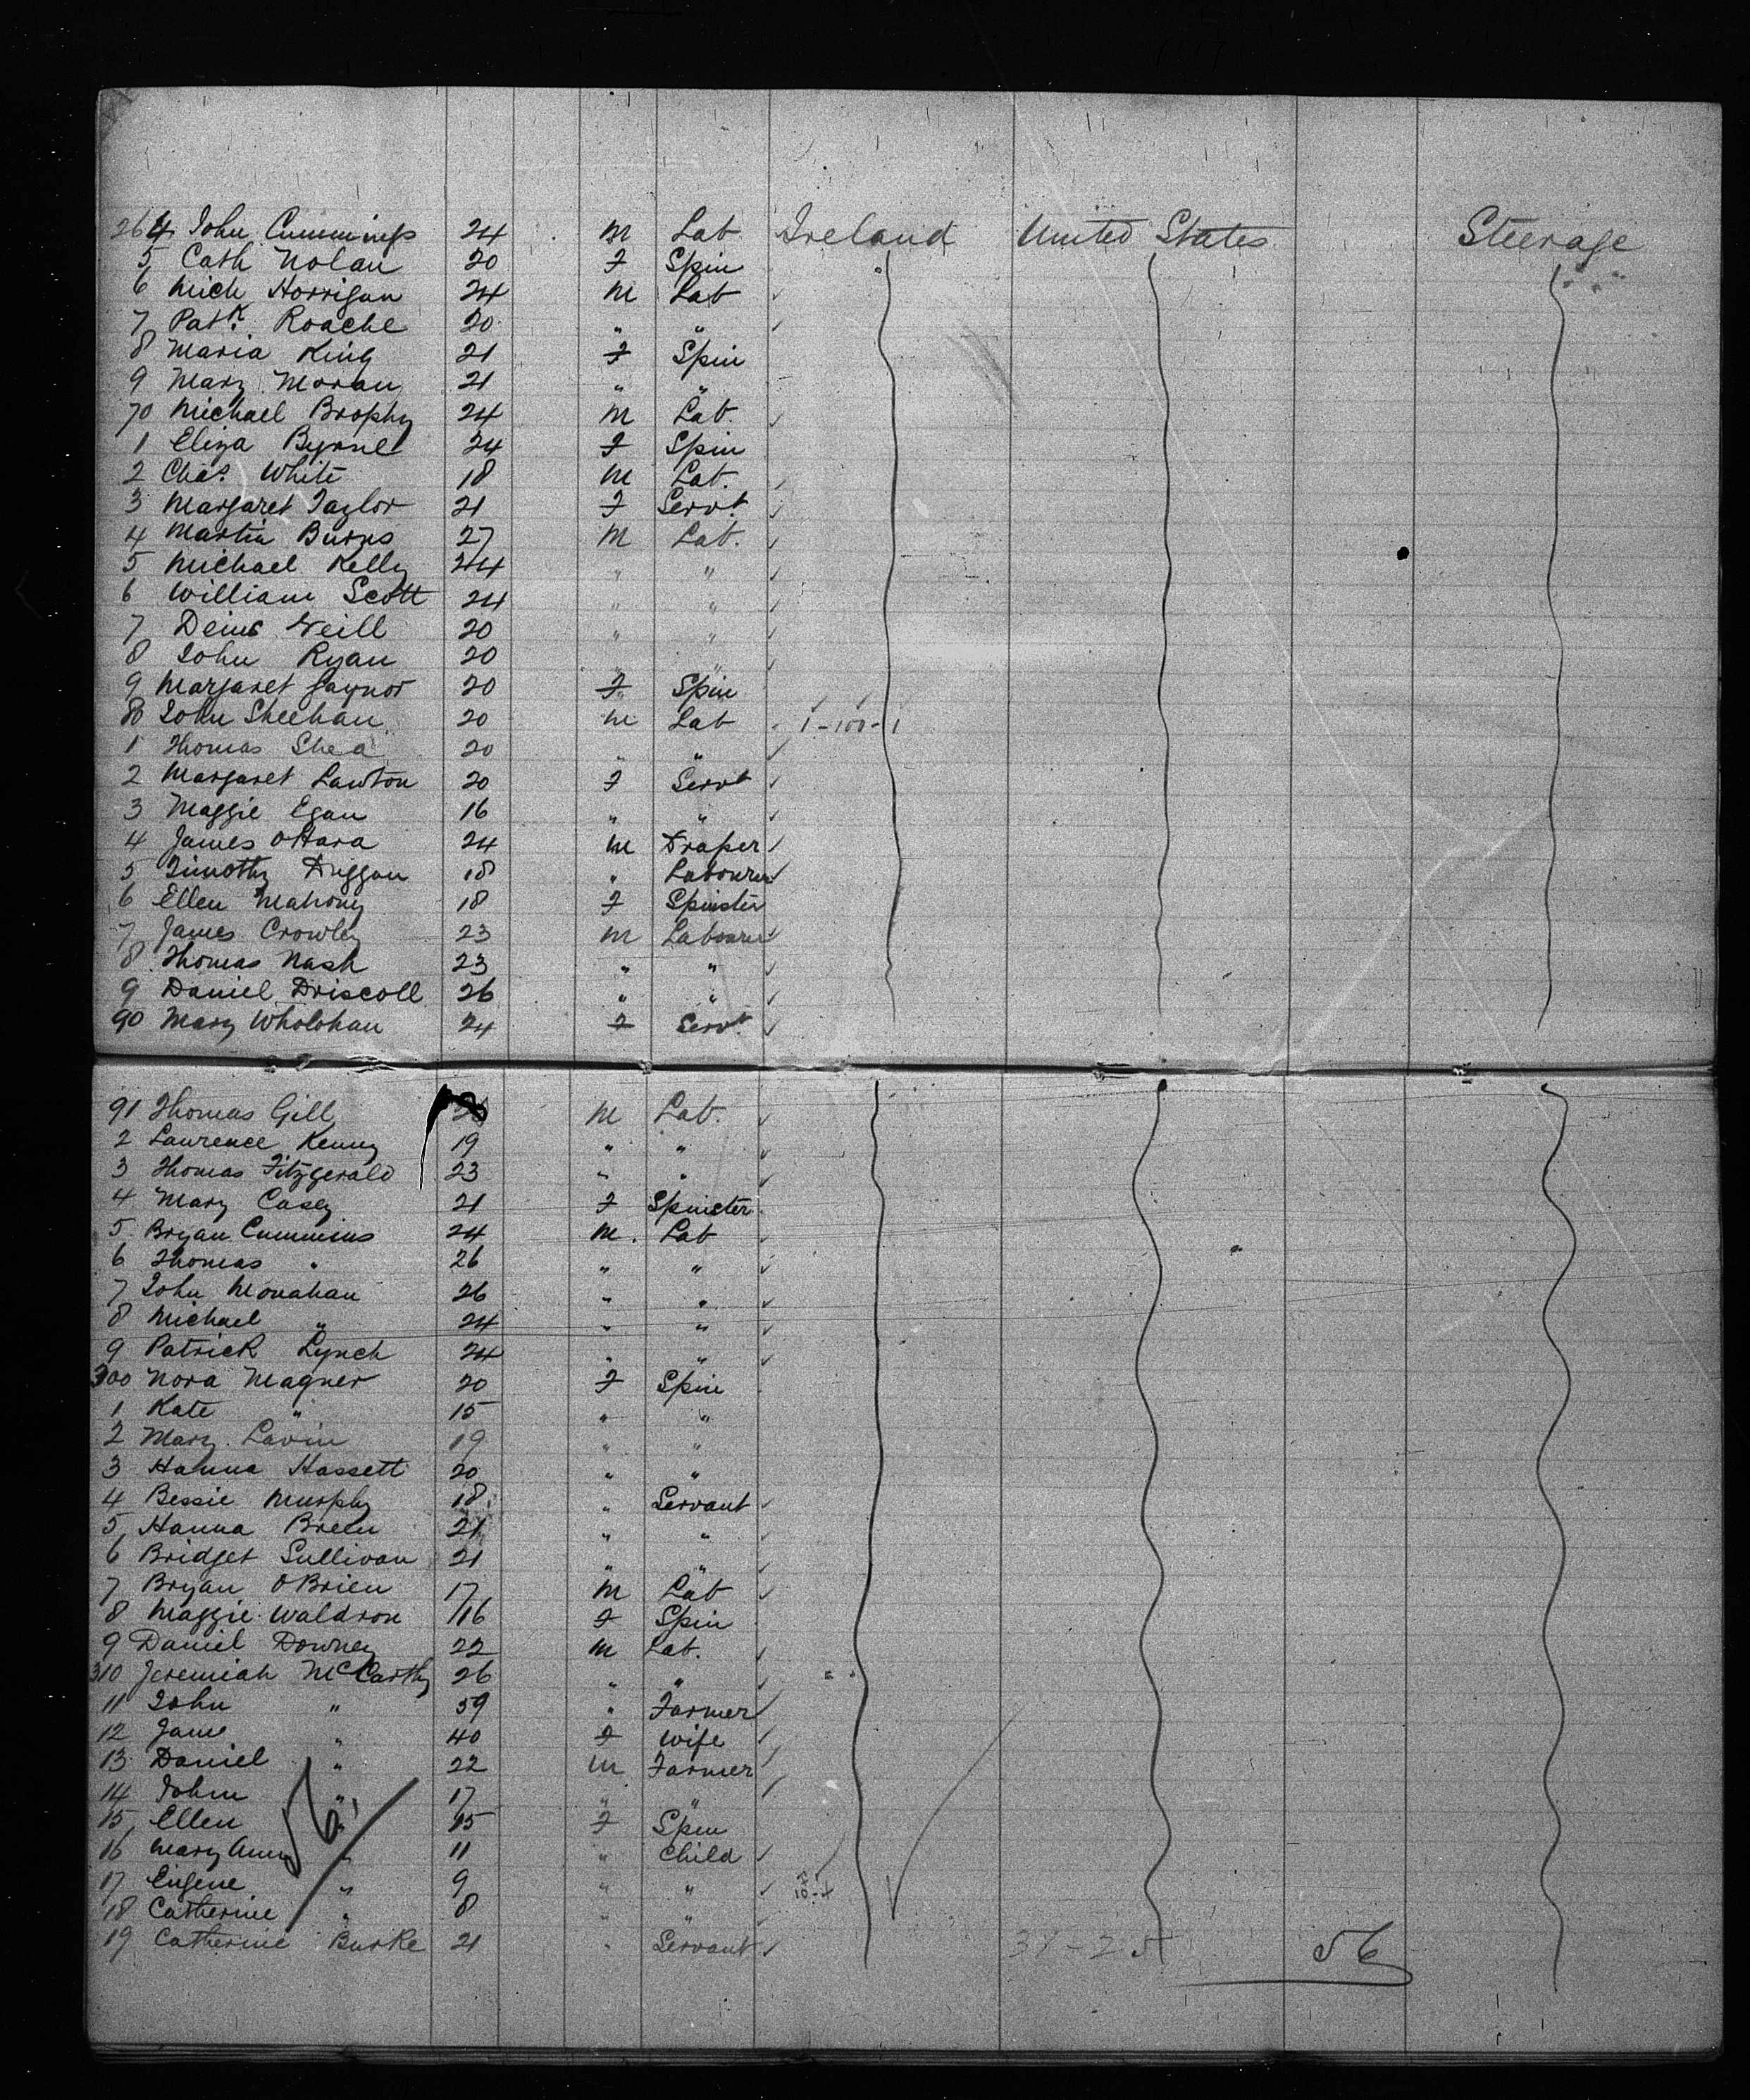 264 John Cummins 24 M Lab Ireland United States Steerage
5 Cath Nolan 20 F Spin
6 Mich Horrigan 24 M Lab
7 Patk. Roache 20 " "
8 Maria King 21 F Spin
9 Mary Moran 21 " "
70 Michael Brophy 24 M Lab.
1 Eliza Byrne 24 F Spin
2 Chas. White 18 M Lab.
3 Margaret Taylor 21 F Servt
4 Martin Burns 27 M Lab.
5 Michael Kelly 24 " "
6 William Scott 24 " "
7 Denis Neill 20 " "
8 John Ryan 20 " "
9 Margaret Gaynor 20 F Spin
80 John Sheehan 20 M Lab 1-100-1
1 Thomas Shea 20 " "
2 Margaret Lawton 20 F Servt
3 Maggie Egan 16 " "
4 James OHara 24 M Draper
5 Timothy Duggan 18 " Labourer
6 Ellen Mahony 18 F Spinster
7 James Crowley 23 M Labourer
8 Thomas Nash 23 " "
9 Daniel Driscoll 26 " "
90 Mary Wholohan 24 F Servt
91 Thomas Gill M Lab.
2 Lawrence Kenny 19 " "
3 Thomas Fitzgerald 23 " "
4 Mary Casey 21 F Spinster
5 Bryan Cummins 24 M. Lab
6 Thomas " 26 " "
7 John Monahan 26 " "
8 Michael " 24 " "
9 Patrick Lynch 24 " "
300 Nora Magner 20 F Spin
1 Kate " 15 " "
2 Mary Lavin 19 " "
3 Hanna Hassett 20 " "
4 Bessie Murphy 18 " Servant
5 Hanna Breen 21 " "
6 Bridget Sullivan 21 " "
7 Bryan OBrien 17 M Lab
8 Maggie Waldron 16 F Spin
9 Daniel Downey 22 M Lab.
310 Jeremiah McCarthy 26 " "
11 John " 59 " Farmer
12 Jane " 40 F Wife
13 Daniel " 22 M Farmer
14 John " 17 " "
15 Ellen " 15 F Spin
16 Mary Ann " 11 " Child
17 Eugene " 9 " "
18 Catherine " 8 " "
19 Catherine Burke 21 " Servant 56
56